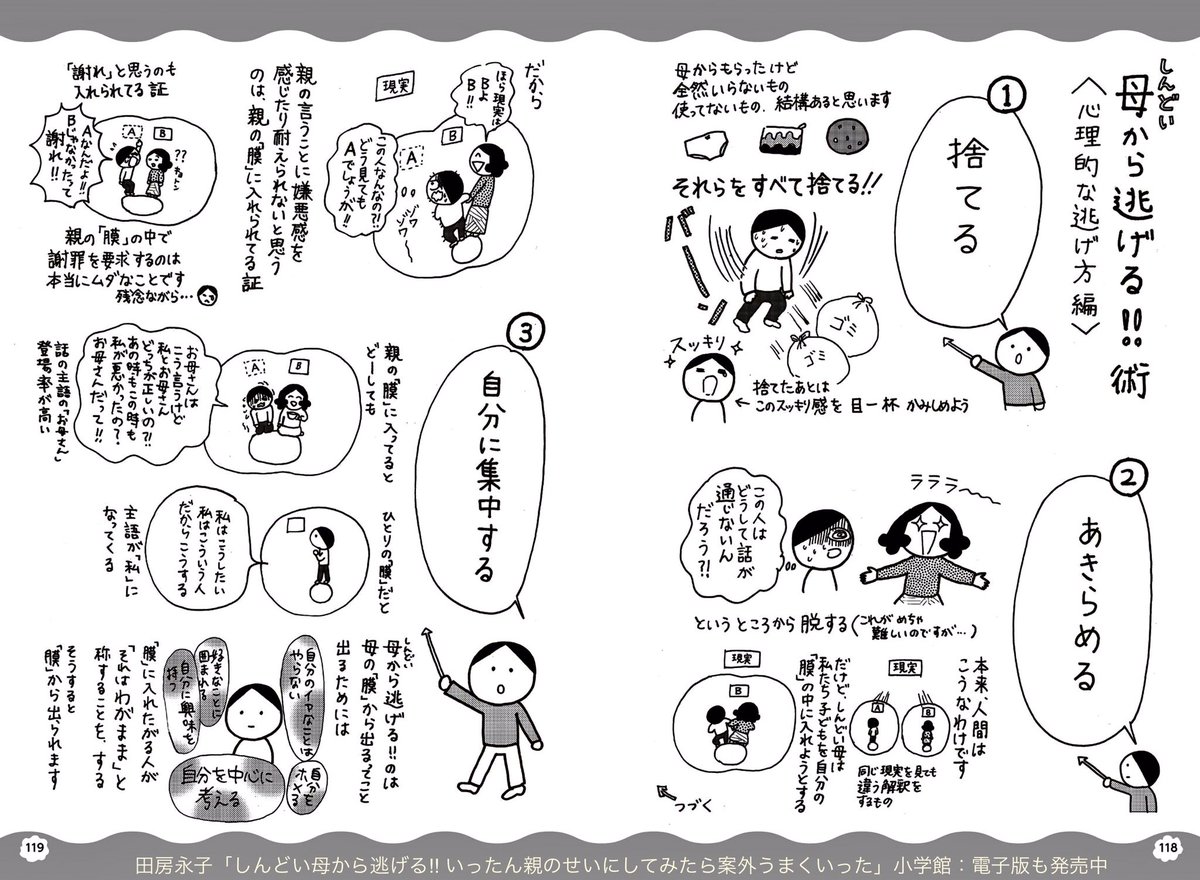 しんどい
母から逃げる!!術
〈心理的な逃げ方編〉
①
捨てる
母からもらったけど
全然いらないもの
使ってないもの、結構あると思います
それらをすべて捨てる!!
ゴミ
ゴミ
スッキリ
捨てたあとは
このスッキリ感を目一杯かみしめよう
②
あきらめる
ラララ〜
この人は
どうして話が
通じないん
だろう?!
というところから脱する(これがめちゃ
難しいのですが…)
本来、人間は
こうなわけです
現実
A
B
同じ現実を見ても
違う解釈を
するもの
だけど、しんどい母は
私たち子どもを自分の
「膜」の中に入れようとする
現実
B
つづく
118
だから
ほら現実は
Bよ
B!!
現実
B
A
この人なんなの?!
どう見ても
Aでしょうが!!
ゾワ
ゾワ〜
親の言うことに嫌悪感を
感じたり耐えられないと思う
のは、親の「膜」に入れられてる証
「謝れ」と思うのも
入れられてる証
A
B
??
キョトン
Aなんだよ!!
Bじゃなかったって
謝れ!!
親の「膜」の中で
謝罪を要求するのは
本当にムダなことです
残念ながら…
③
自分に集中する
親の「膜」に入ってると
どーしても
A
B
お母さんは
こう言うけど
私とお母さん
どっちが正しいの?!
あの時もこの時も
私が悪かったの?
お母さんだって!!
話の主語の「お母さん」
登場率が高い
ひとりの「膜」だと
私はこうしたい
私はこういう人
だからこうする
主語が「私」に
なってくる
しんどい
母から逃げる!!のは
母の「膜」から出るってこと
出るためには
自分のイヤなことは
やらない
好きなことに
囲まれる
自分に興味を
持つ
自分を中心に
考える
自分を
ホメる
「膜」に入れたがる人が
「それはわがまま」と
称することを、する
そうすると
「膜」から出られます
119
田房永子「しんどい母から逃げる!! いったん親のせいにしてみたら案外うまくいった」小学館：電子版も発売中